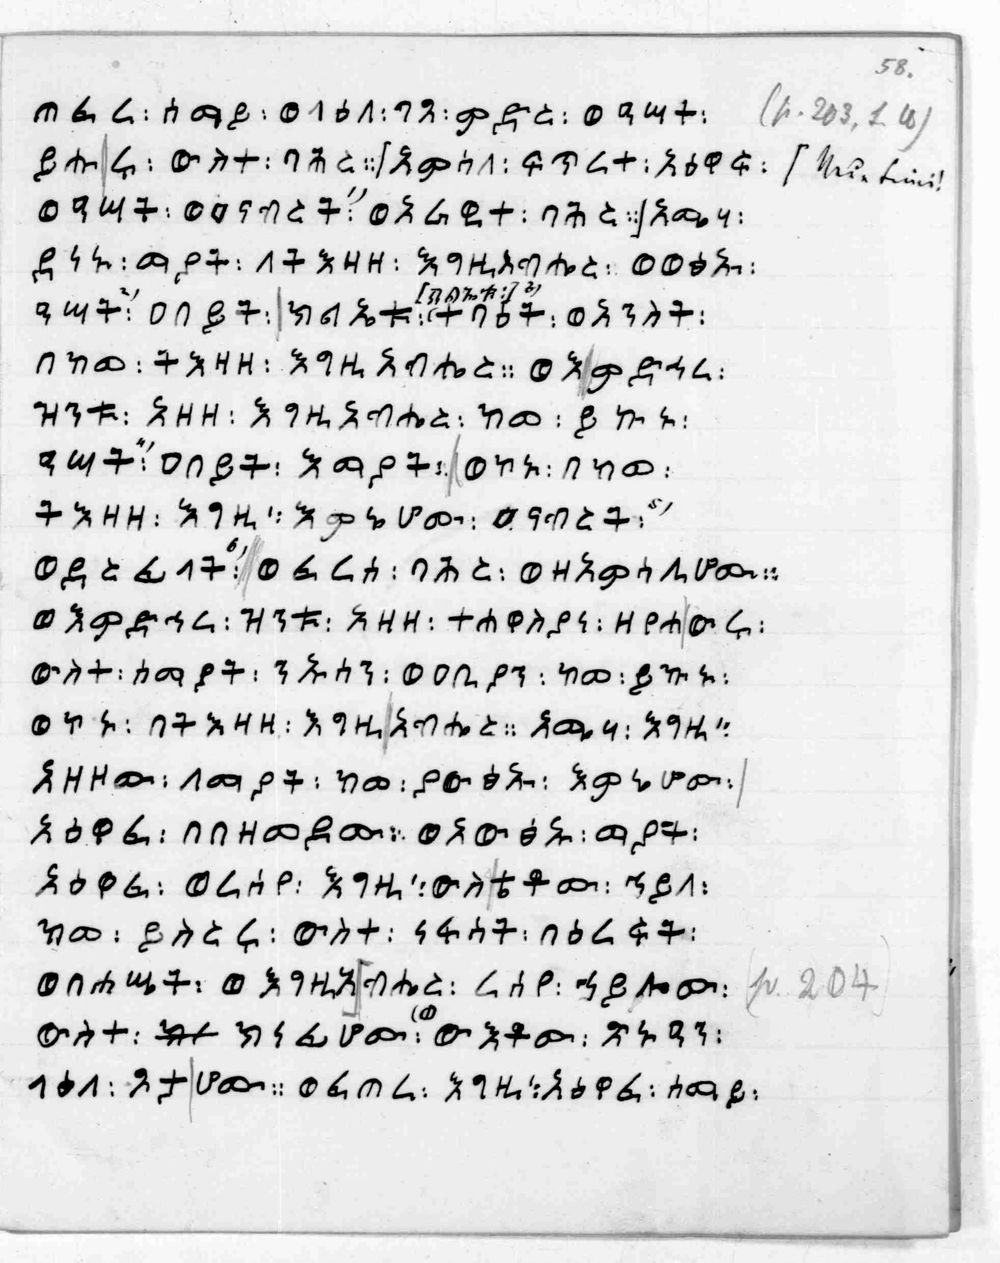 58.
ጠፈረ፡ ሰማይ፡ ወላዕለ፡ ገጸ፡ ምድር፡ ወዓሣት፡ (p. 203,
ይሑሩ፡ ውስተ፡ ባሕር። አምሳለ፡ ፍጥረተ፡ አዕዋፍ፡
ወዓሣት፡ ወዐናብርት፡¹⁾ ወአራዊተ፡ ባሕር። አሜሃ፡
ይነኑ፡ ማያት፡ ለትእዛዘ፡ እግዚአብሔር። ወወፅኡ፡
ዓሣት፡²⁾ ዐበይት፡ ተባዕት፡ ወአንስት፡
በከመ፡ ትእዛዘ፡ እግዚአብሔር። ወእምድኅረ፡
ዝንቱ፡ አዘዘ፡ እግዚአብሔር፡ ከመ፡ ይኩኑ፡
ዓሣት፡⁴⁾ ዐበይት፡ እማያት፡ ወኮኑ፡ በከመ፡
ትእዛዘ፡ እግዚ"፡ እምኔሆሙ፡ ዐናብርት፡⁵⁾
ወይርፊላት፡⁶⁾ ወፈረሰ፡ ባሕር፡ ወዘእምሳሊሆሙ።
ወእምድኅረ፡ ዝንቱ፡ አዘዘ፡ ተሐዋስያነ፡ ዘየሐውሩ፡
ውስተ፡ ሰማያት፡ ንኡሳን፡ ወዐቢያን፡ ከመ፡ ይኩኑ፡
ወኮኑ፡ በትእዛዘ፡ እግዚአብሔር። አሜሃ፡ እግዚ"፡
አዘዞሙ፡ ለማያት፡ ከመ፡ ያውፅኡ፡ እምኔሆሙ፡
አዕዋፈ፡ በበዘመዶሙ። ወአውፅኡ፡ ማያት፡
አዕዋፈ፡ ወረሰየ፡ እግዚ"፡ ውስቴቶሙ፡ ኀይለ፡
ከመ፡ ይስርሩ፡ ውስተ፡ ነፋሳት፡ በዕረፍት፡
ወበሐሤት፡ ወእግዚአብሔር፡ ረሰየ፡ ኀይሎሙ፡ (p. 204)
ውስተ፡ ክነፊሆሙ፡ ወውእቶሙ፡ ጽኑዓን፡
ላዕለ፡ ጾታሆሙ። ወፈጠረ፡ እግዚ"፡ አዕዋፈ፡ ሰማይ፡